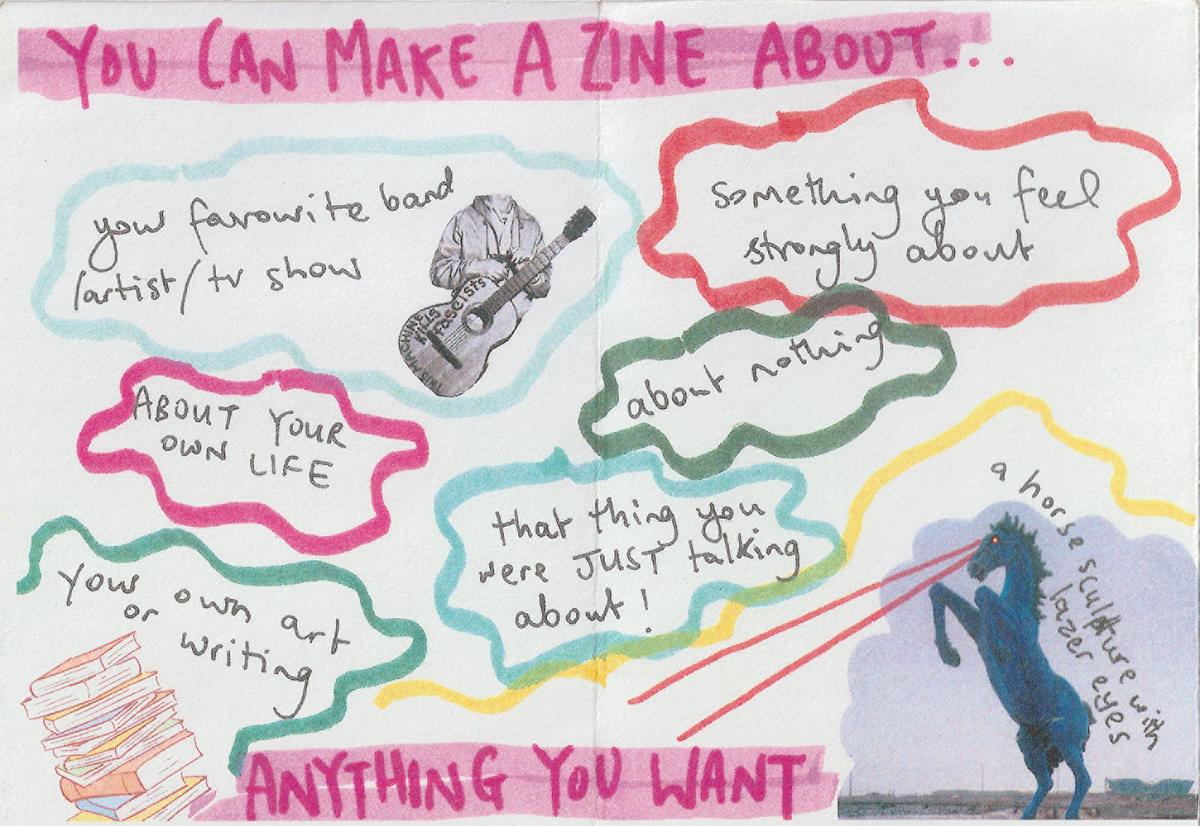 YOU CAN MAKE A ZINE ABOUT...
your favourite band
/artist/tv show
THIS MACHINE
KILLS
fascists
something you feel
strongly about
about nothing
ABOUT YOUR
OWN LIFE
that thing you
were JUST talking
about!
a horse sculpture with
lazer eyes
Your own art
or
writing
ANYTHING YOU WANT